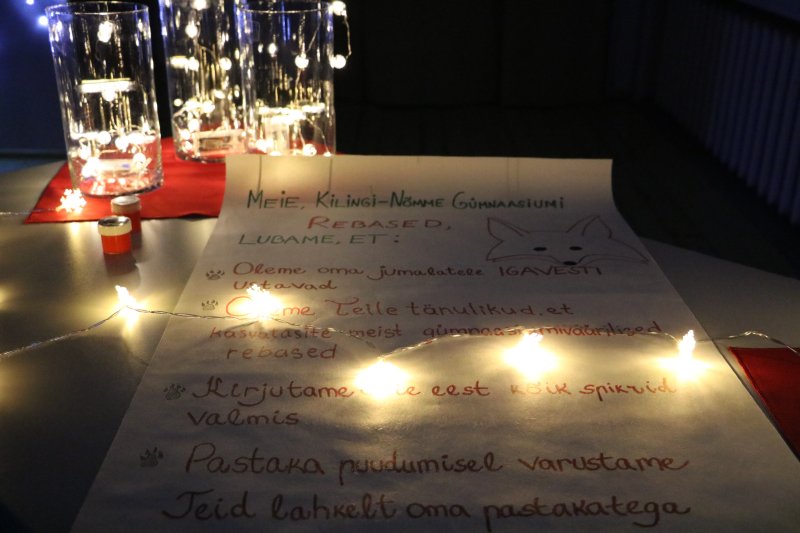 MEIE, KILINGI-NÕMME GÜMNAASIUMI
REBASED,
LUBAME, ET:
OLEME OMA JUMALATELE IGAVESTI
USTAVAD
OLEME TEILE tänulikud, et
kasvatasite meist
rebased
Kirjutame eest KÕIK SPIKRID
VALMIS
Pastaka puudumisel varustame
Teid lahkelt oma pastakatega